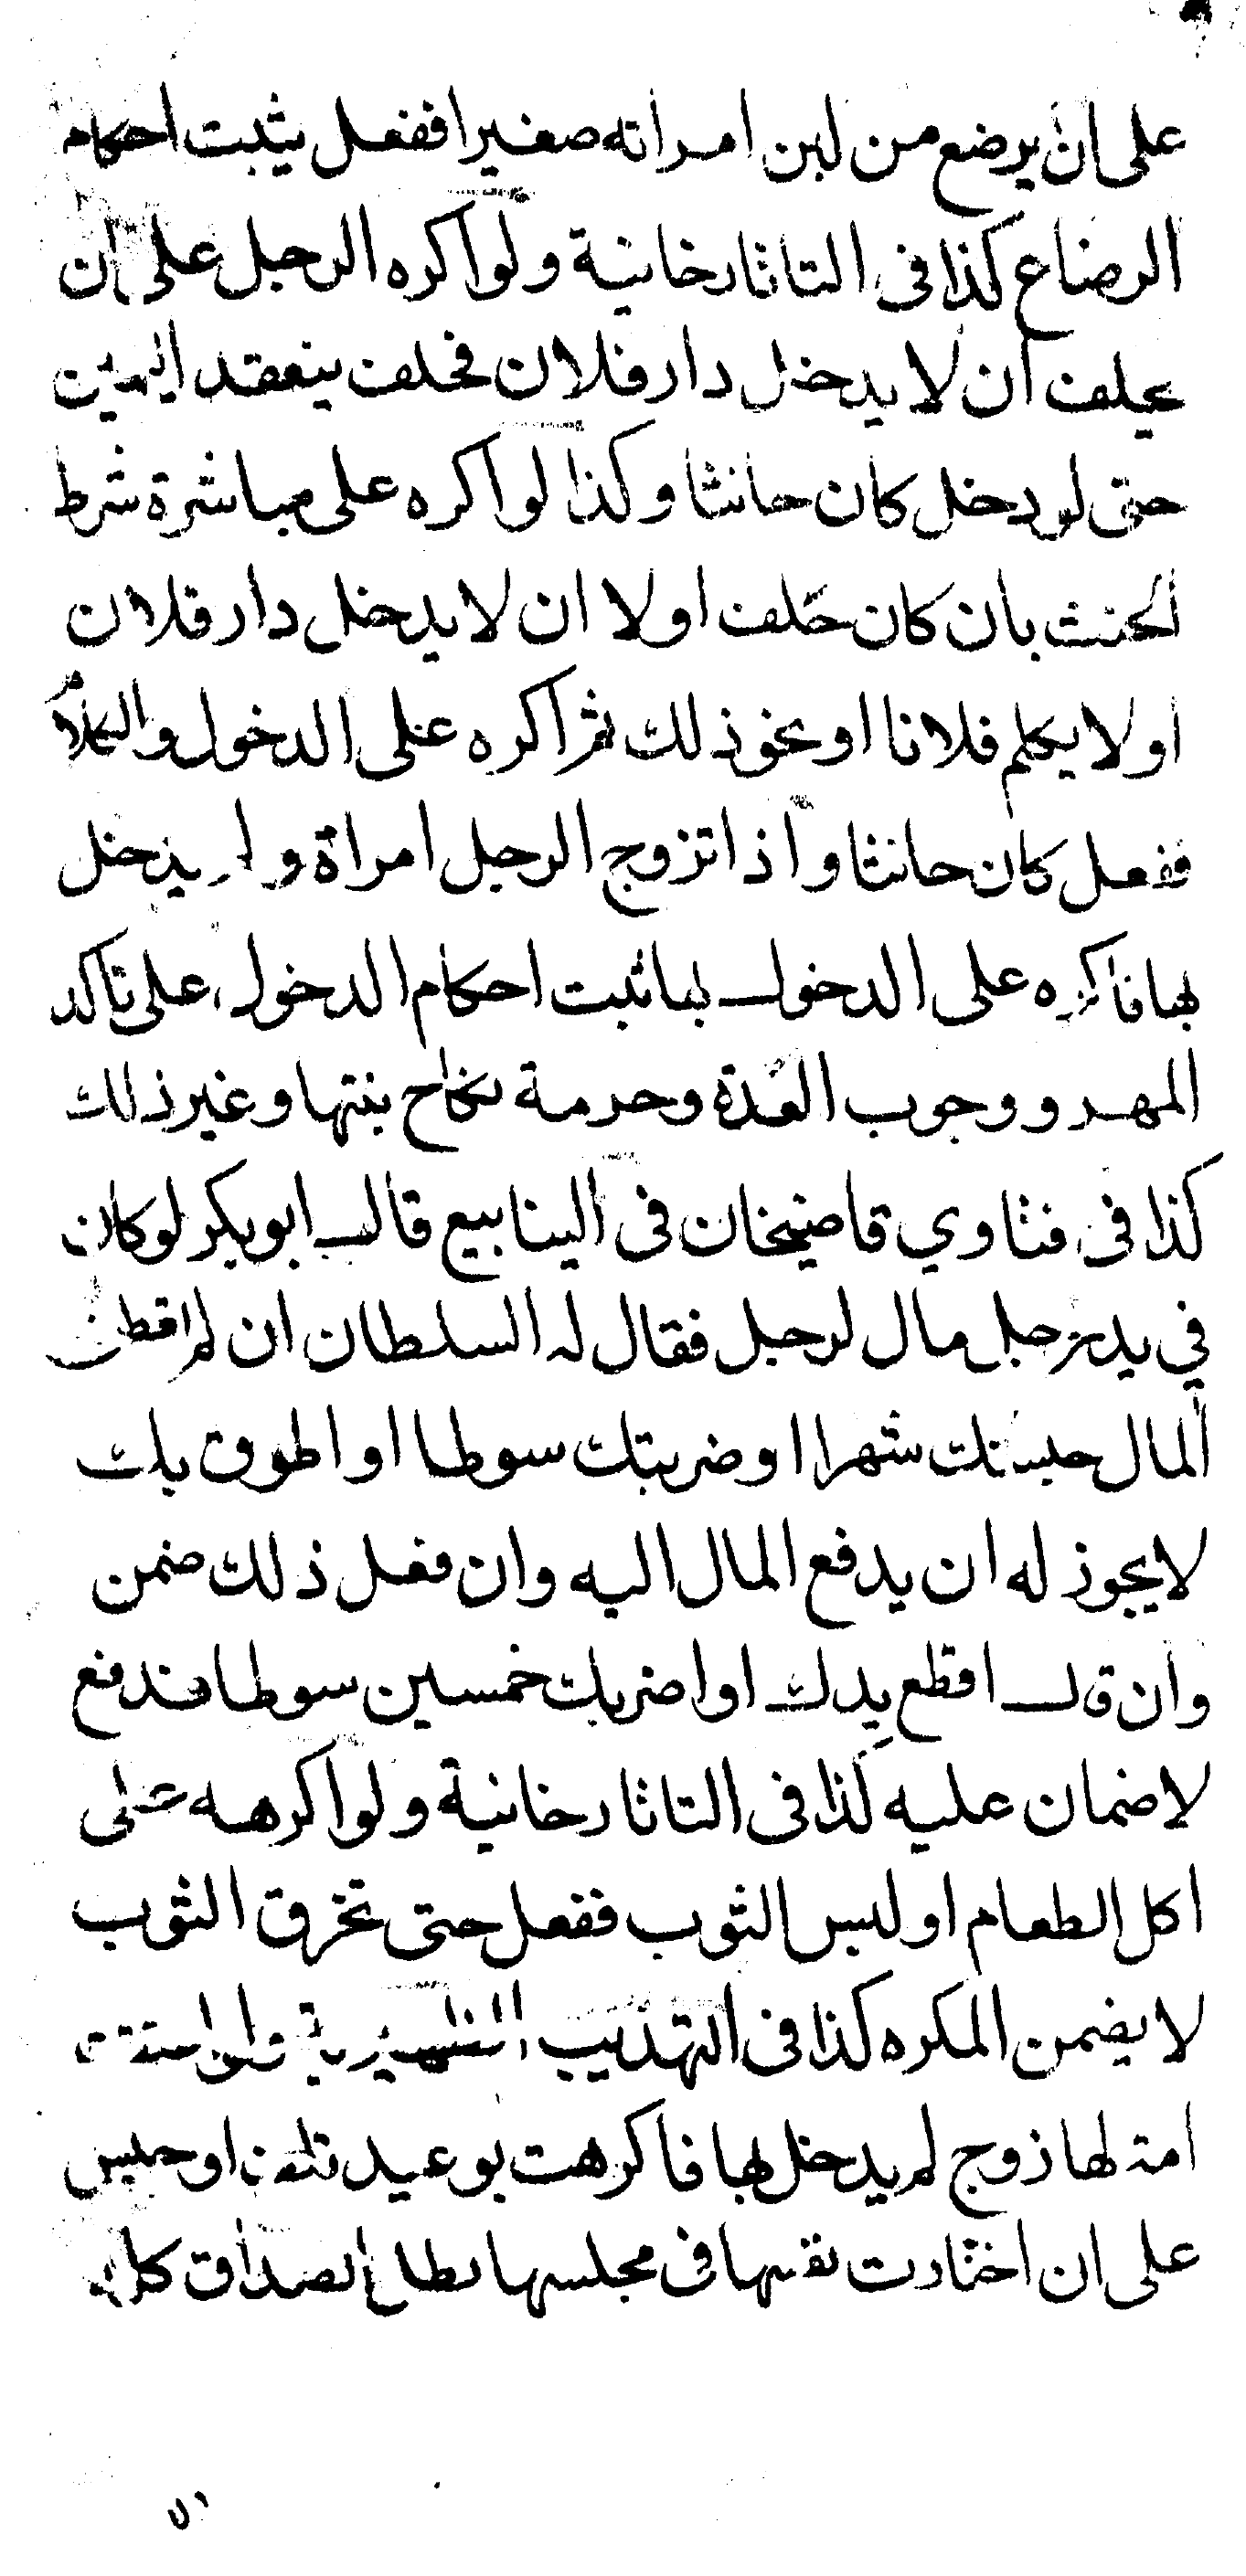 على ان يرضع من لبن امراته صغيرا ففعل يثبت احكام
الرضاع كذا فى التاتارخانية ولو اكره الرجل على ان
يحلف ان لا يدخل دار فلان فحلف ينعقد اليمين
حتى لو دخل كان حانثا وكذا لو اكره على مباشرة شرط
الحنث بان كان حلف اولا ان لا يدخل دار فلان
او لا يكلم فلانا او نحو ذلك ثم اكره على الدخول والكلام
ففعل كان حانثا واذا تزوج الرجل امراة ولم يدخل
بها فاكره على الدخول بها ثبت احكام الدخول على تاكد
المهر ووجوب العدة وحرمة نكاح بنتها وغير ذلك
كذا فى فتاوي قاضيخان فى الينابيع قال ابو بكر لو كان
في يد رجل مال لرجل فقال له السلطان ان لم
المال حبستك شهرا او ضربتك سوطا او اطوف بك
لا يجوز له ان يدفع المال اليه وان فعل ذلك ضمن
وان قال اقطع يدك او اضربك خمسين سوطا فدفع
لا ضمان عليه كذا فى التاتارخانية ولو اكرهه على
اكل الطعام او لبس الثوب ففعل حتى تخرق الثوب
لا يضمن المكره كذا فى التهذيب الظهيرية ولو اعتقت
امة لها زوج لم يدخل بها فاكرهت بوعيد تلف او حبس
على ان اختارت نفسها فى مجلسها بطل الصداق كله